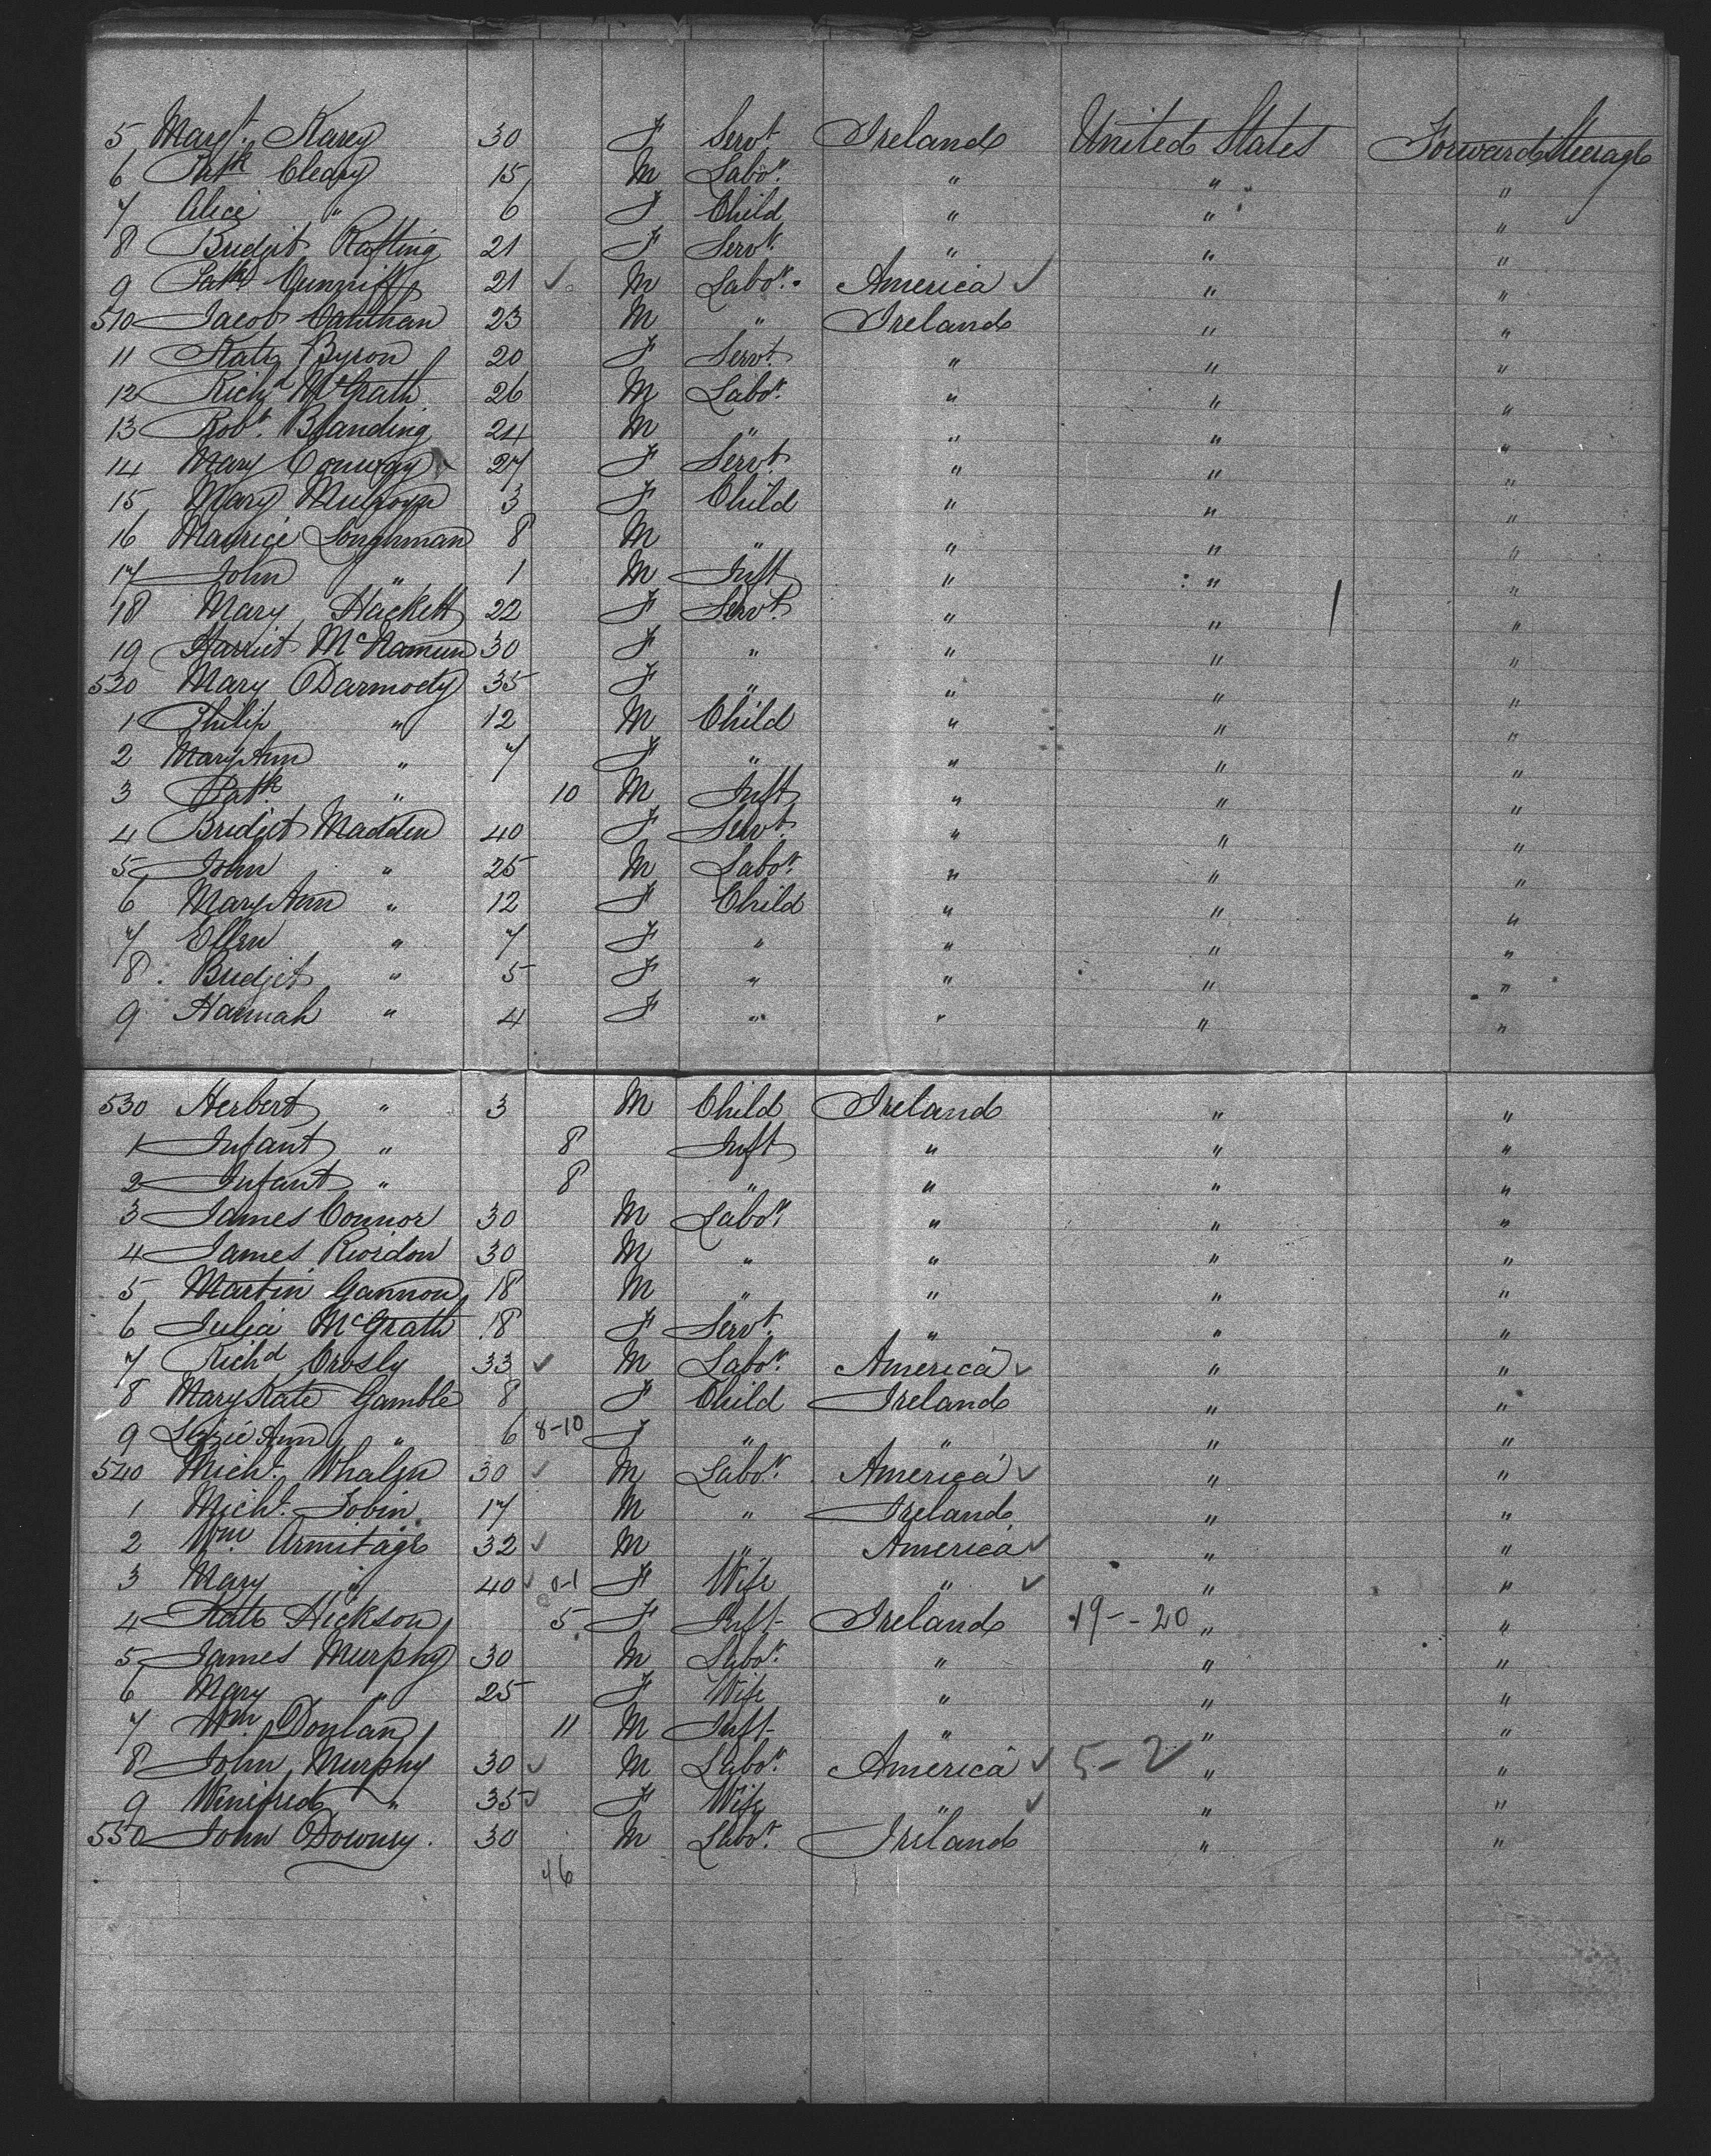 5 Margt. Karey 30 F Servt Ireland United States Forward Steerage
6 Patk Cleary 15 M Labor. " " "
7 Alice " 6 F Child " " "
8 Bridget Rafting 21 F Servt. " " "
9 Patk 21 ✓ M Labor. America ✓ " "
510 Jacob 23 M " Ireland " "
11 Kate Byron 20 F Servt " " "
12 Richd McGrath 26 M Labor. " " "
13 Robt. Blanding 24 M " " " "
14 Mary Conway 27 F Servt. " " "
15 Mary 3 F Child " " "
16 Maurice Loughman 8 M " " " "
17 John " 1 M Inft " " "
18 Mary Hackett 22 F Servt. " " "
19 Harriet McNamun 30 F " " " "
520 Mary Darmody 35 F " " " "
1 Philip " 12 M Child " " "
2 Mary Ann " 7 F " " " "
3 Patk " 10 M Inft " " "
4 Bridget Madden 40 F Servt. " " "
5 John " 25 M Labor. " " "
6 Mary Ann " 12 F Child " " "
7 Ellen " 7 F " " " "
8 Bridget " 5 F " " " "
9 Hannah " 4 F " " " "
530 Herbert " 3 M Child Ireland " "
1 Infant " 8 Inft " " "
2 Infant " 8 " " " "
3 James Connor 30 M Labor. " " "
4 James Riordon 30 M " " " "
5 Martin Gannon 18 M " " " "
6 Julia McGrath 18 F Servt. " " "
7 Richd Crosly 33 ✓ M Labor. America ✓ " "
8 Mary Kate Gamble 8 F Child Ireland " "
9 Lizzie Ann " 6 8-10 F " " " "
540 Michl. Whalen 30 ✓ M Labor. America ✓ " "
1 Michl. Tobin 17 M " Ireland " "
2 Wm. Armitage 32 ✓ M " America ✓ " "
3 Mary " 40 ✓ 0-1 F Wife " ✓ " "
4 Kate Hickson 5 F Inft Ireland 19--20 " "
5 James Murphy 30 M Labor. " " "
6 Mary " 25 F Wife " " "
7 Wm. Donlan 11 M Inft " " "
8 John Murphy 30 ✓ M Labor. America ✓ 5-2 " "
9 Winifred " 35 ✓ F Wife " ✓ " "
550 John ODowney. 30 M Labor. Ireland " "
46